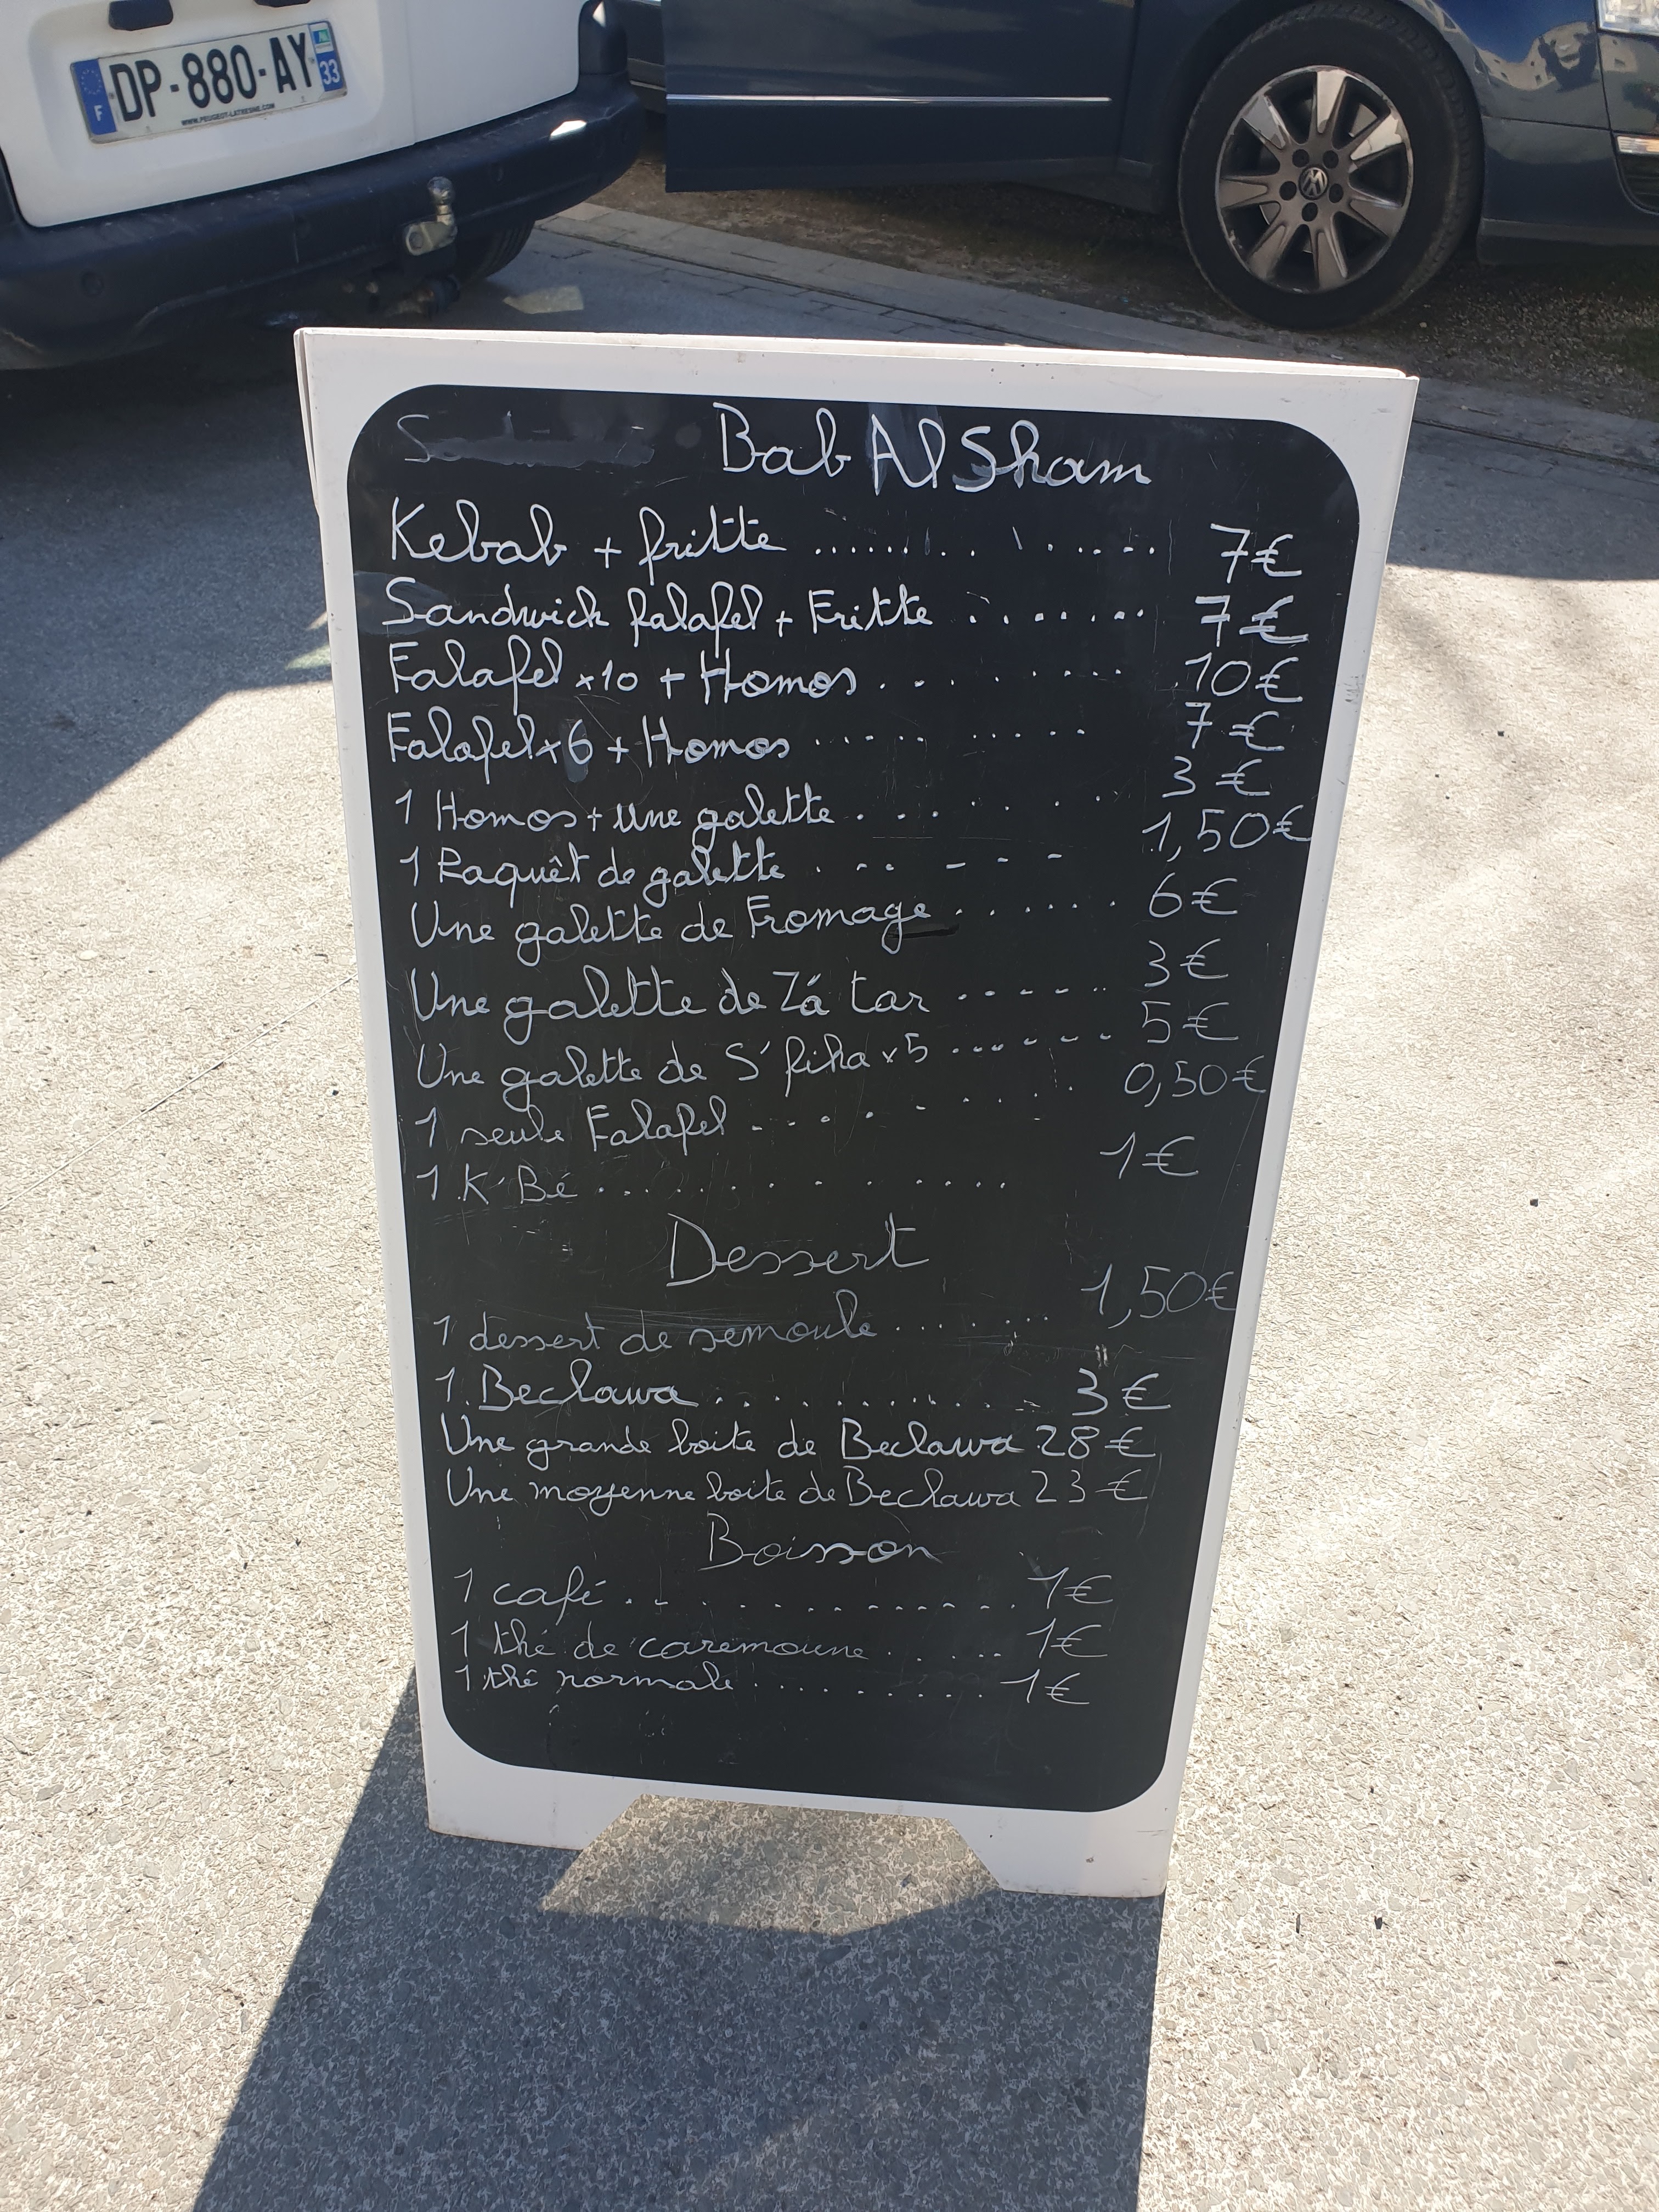 DP-880-AY
F
33
WWW.PEUGEOT-LATRESNE.COM
Bab Al Sham
Kebab + fritte ................ 7€
Sandwich falafel + Fritte ....... 7€
Falafel x10 + Homos ......... 10€
Falafel x6 + Homos ........... 7€
1 Homos + une galette ........ 3€
1 Paquêt de galette ....... 1,50€
Une galette de Fromage ....... 6€
Une galette de Zá tar ...... 3€
Une galette de S'fiha x5 ....... 5€
1 seule Falafel .......... 0,50€
1 K'Bé ............. 1€
Dessert
1 dessert de semoule ....... 1,50€
1 Beclawa ............ 3€
Une grande boite de Beclawa 28€
Une moyenne boite de Beclawa 23€
Boisson
1 café ............. 1€
1 thé de caremoune ...... 1€
1 thé normale .......... 1€